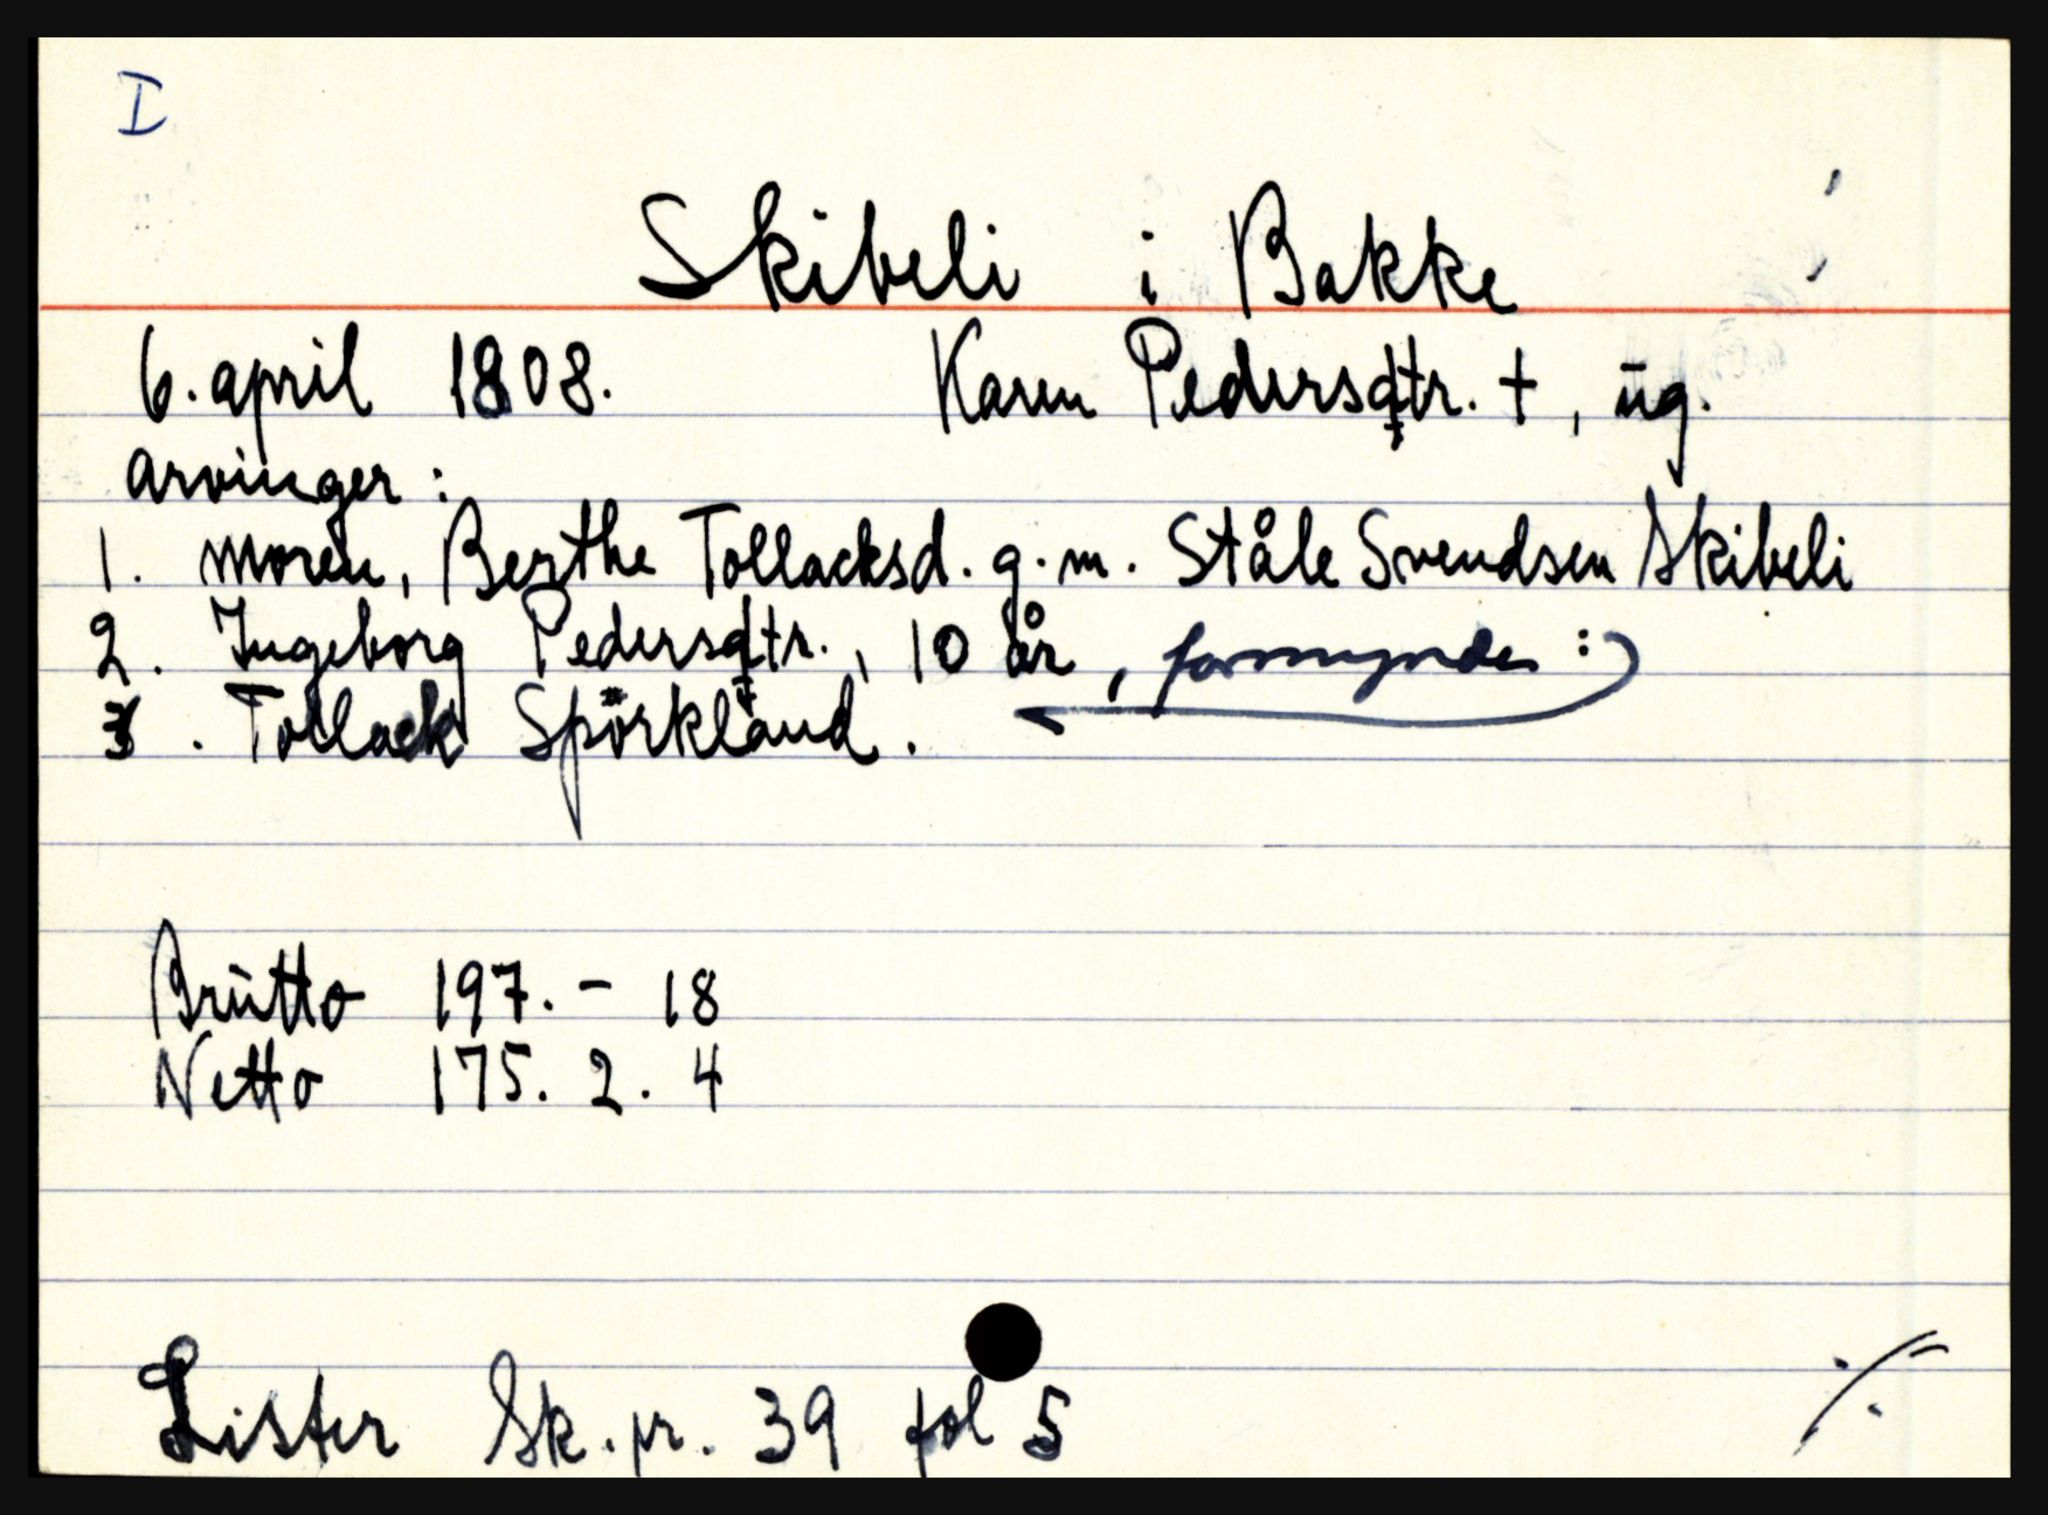 I
Skibeli i Bakke
6. april 1808. Karen Pedersdtr. †, ug.
arvinger:
1. moren, Berthe Tollacksd. g.m. Ståle Svendsen Skibeli
2. Ingeborg Pedersdtr., 10 år, formynder:
3. Tollack Spörkland.
Brutto 197. - 18
Netto 175. 2. 4
Lister Sk.pr. 39 fol 5